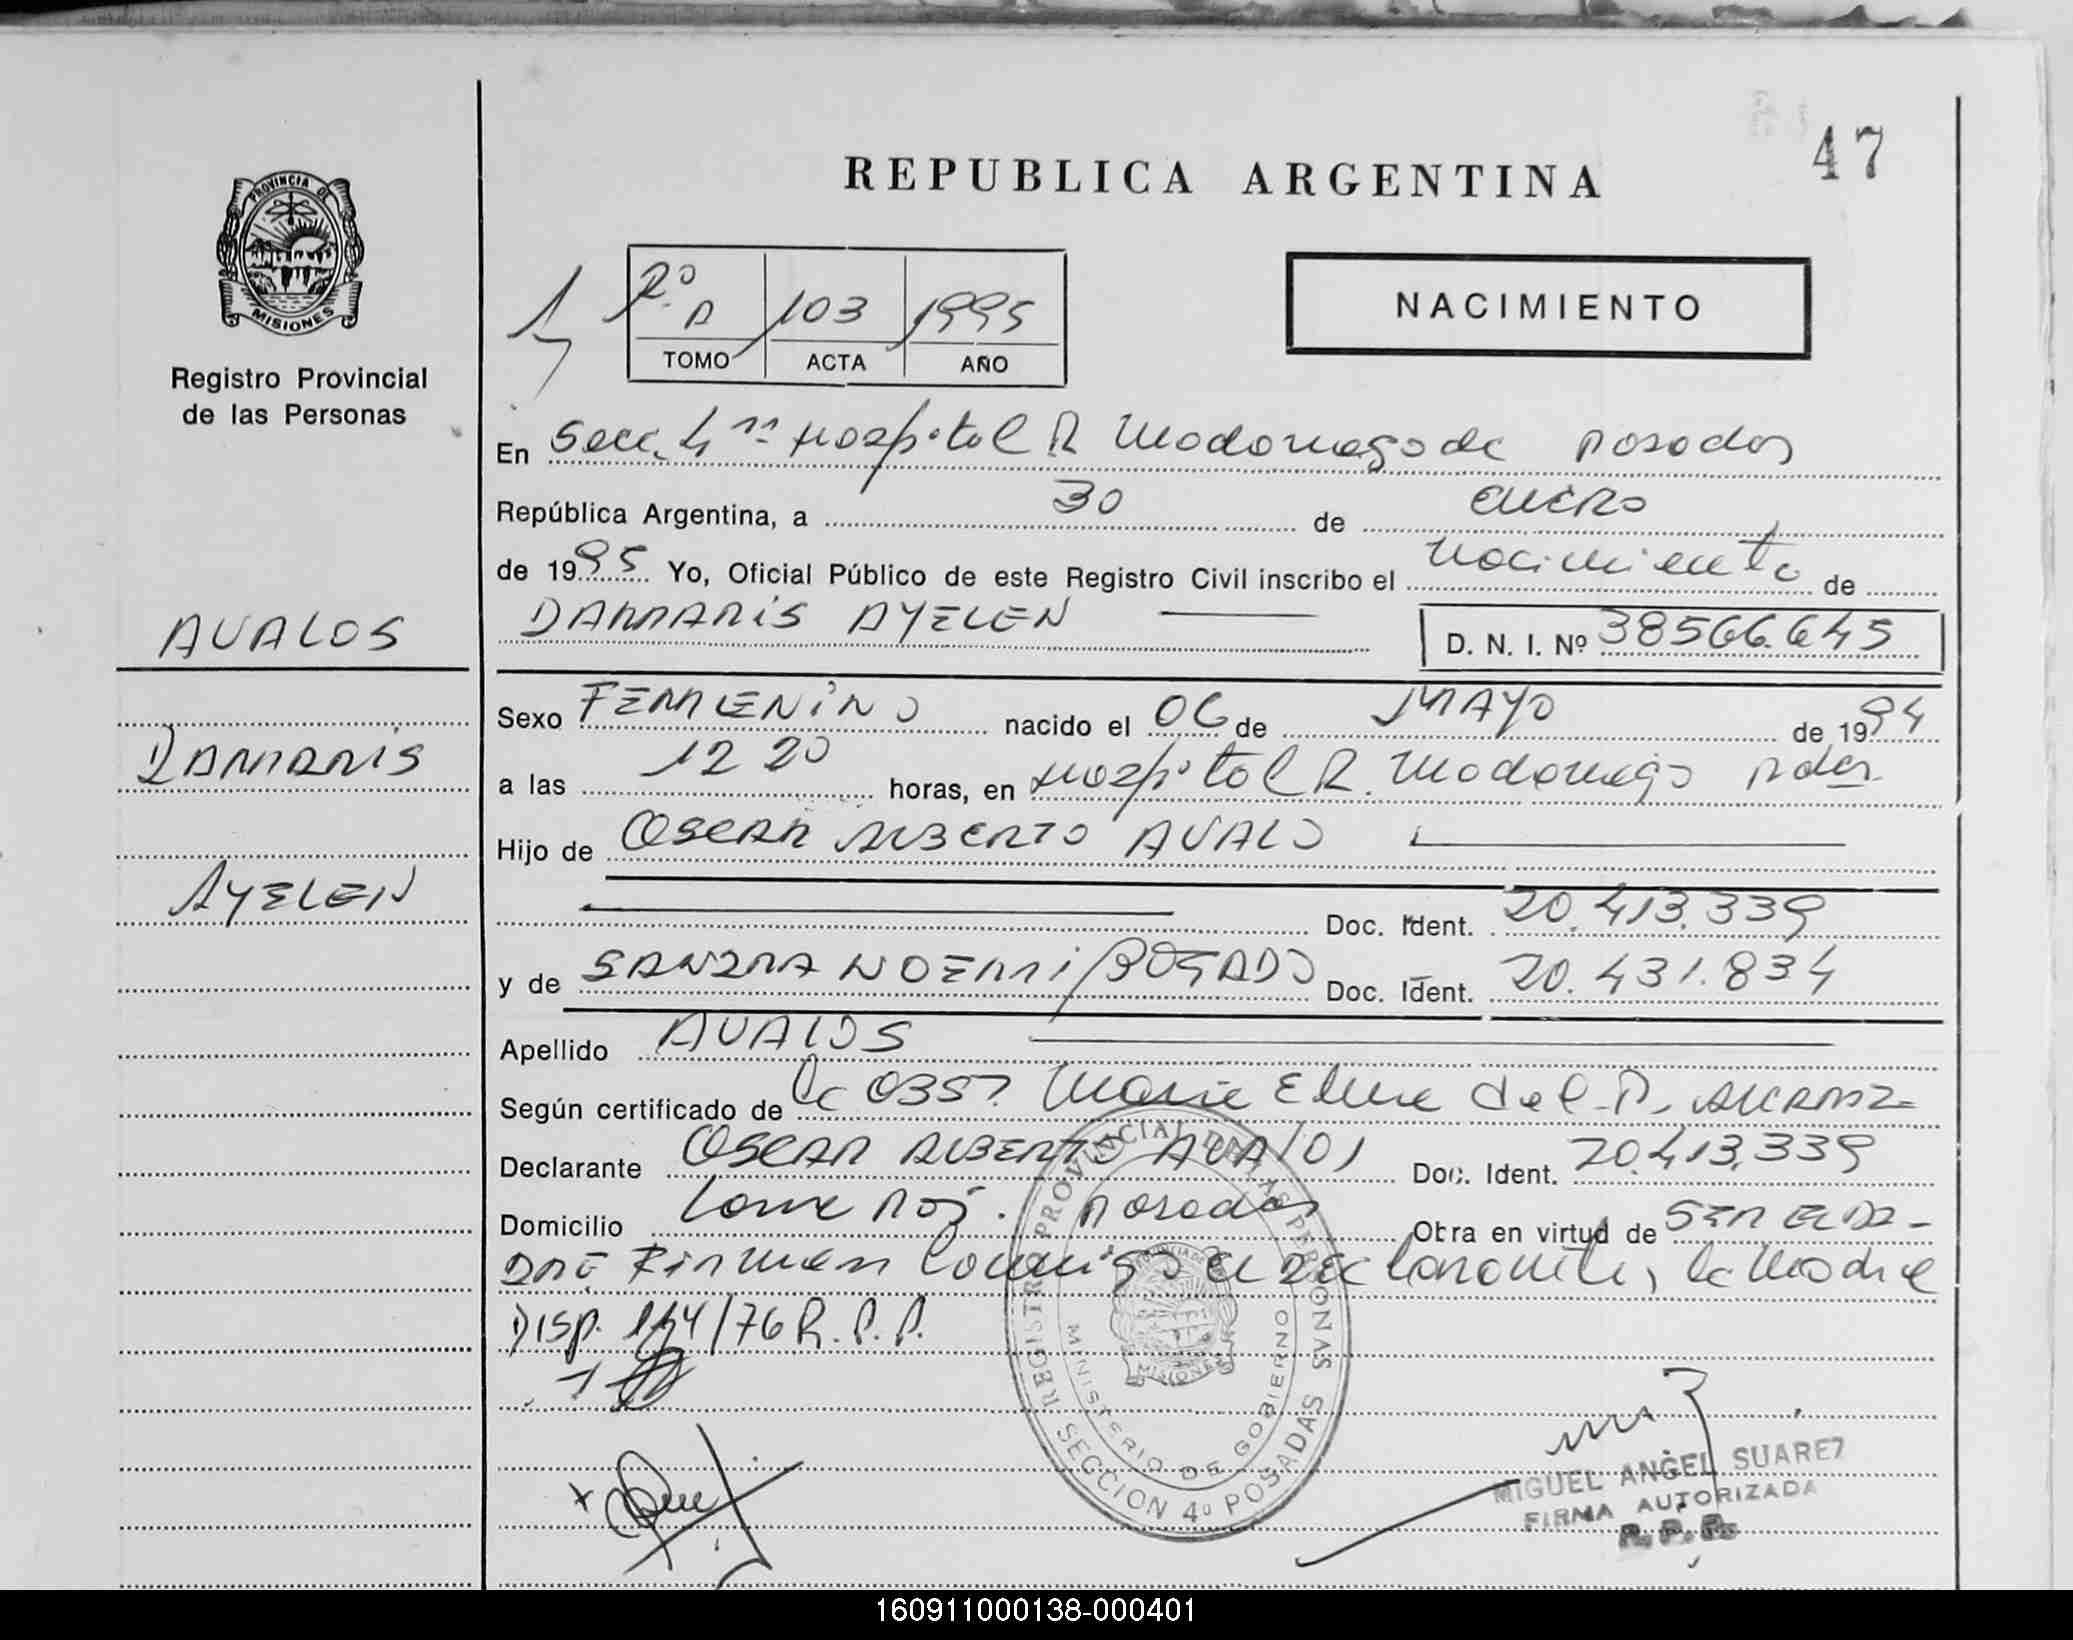 47
REPUBLICA ARGENTINA
PROVINCIA DE
MISIONES
Registro Provincial
de las Personas
2º A 103 1995
TOMO ACTA AÑO
NACIMIENTO
En Secc. 4ta Hospital R Madariaga de Posadas
República Argentina, a 30 de enero
de 1995 Yo, Oficial Público de este Registro Civil inscribo el nacimiento de
DAMARIS AYELEN D. N. I. Nº 38566.645
AVALOS
DAMARIS
AYELEN
Sexo FEMENINO nacido el 06 de MAYO de 1994
a las 12 20 horas, en Hospital R. Madariaga Pdas
Hijo de OSCAR ALBERTO AVALO
Doc. Ident. 20.413.339
y de SANDRA NOEMI BOGADO Doc. Ident. 20.431.834
Apellido AVALOS
Según certificado de la Obst. Maria del P.
Declarante OSCAR ALBERTO AVALOS Doc. Ident. 20.413.339
Domicilio Posadas Obra en virtud de SER EL PA-
DRE Firman conmigo el declarante, la Madre
DISP. 114/76 R.P.P.
REGISTRO PROVINCIAL DE LAS PERSONAS
MINISTERIO DE GOBIERNO
MISIONES
SECCION 4º POSADAS
MIGUEL ANGEL SUAREZ
FIRMA AUTORIZADA
R. P. P.
160911000138-000401